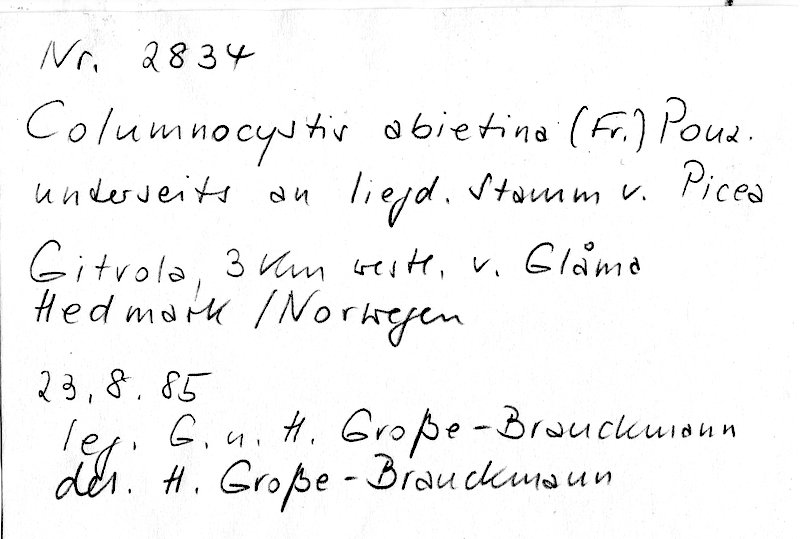 Nr. 2834
Columnocystis abietina (Fr.) Pouz.
unterseits an liegd. Stamm v. Picea
Gitvola, 3 Km westl. v. Glåma
Hedmark / Norwegen
23.8.85
leg. G. u. H. Große-Brauckmann
det. H. Große-Brauckmann